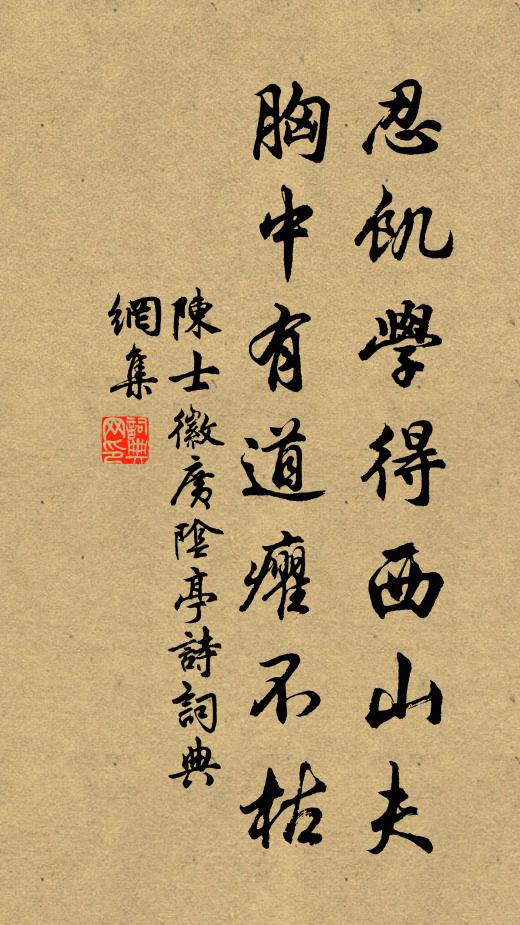 忍飢學得西山夫
胸中有道癯不枯
陳士徽廣陰亭詩詞典
網集
詞典網印